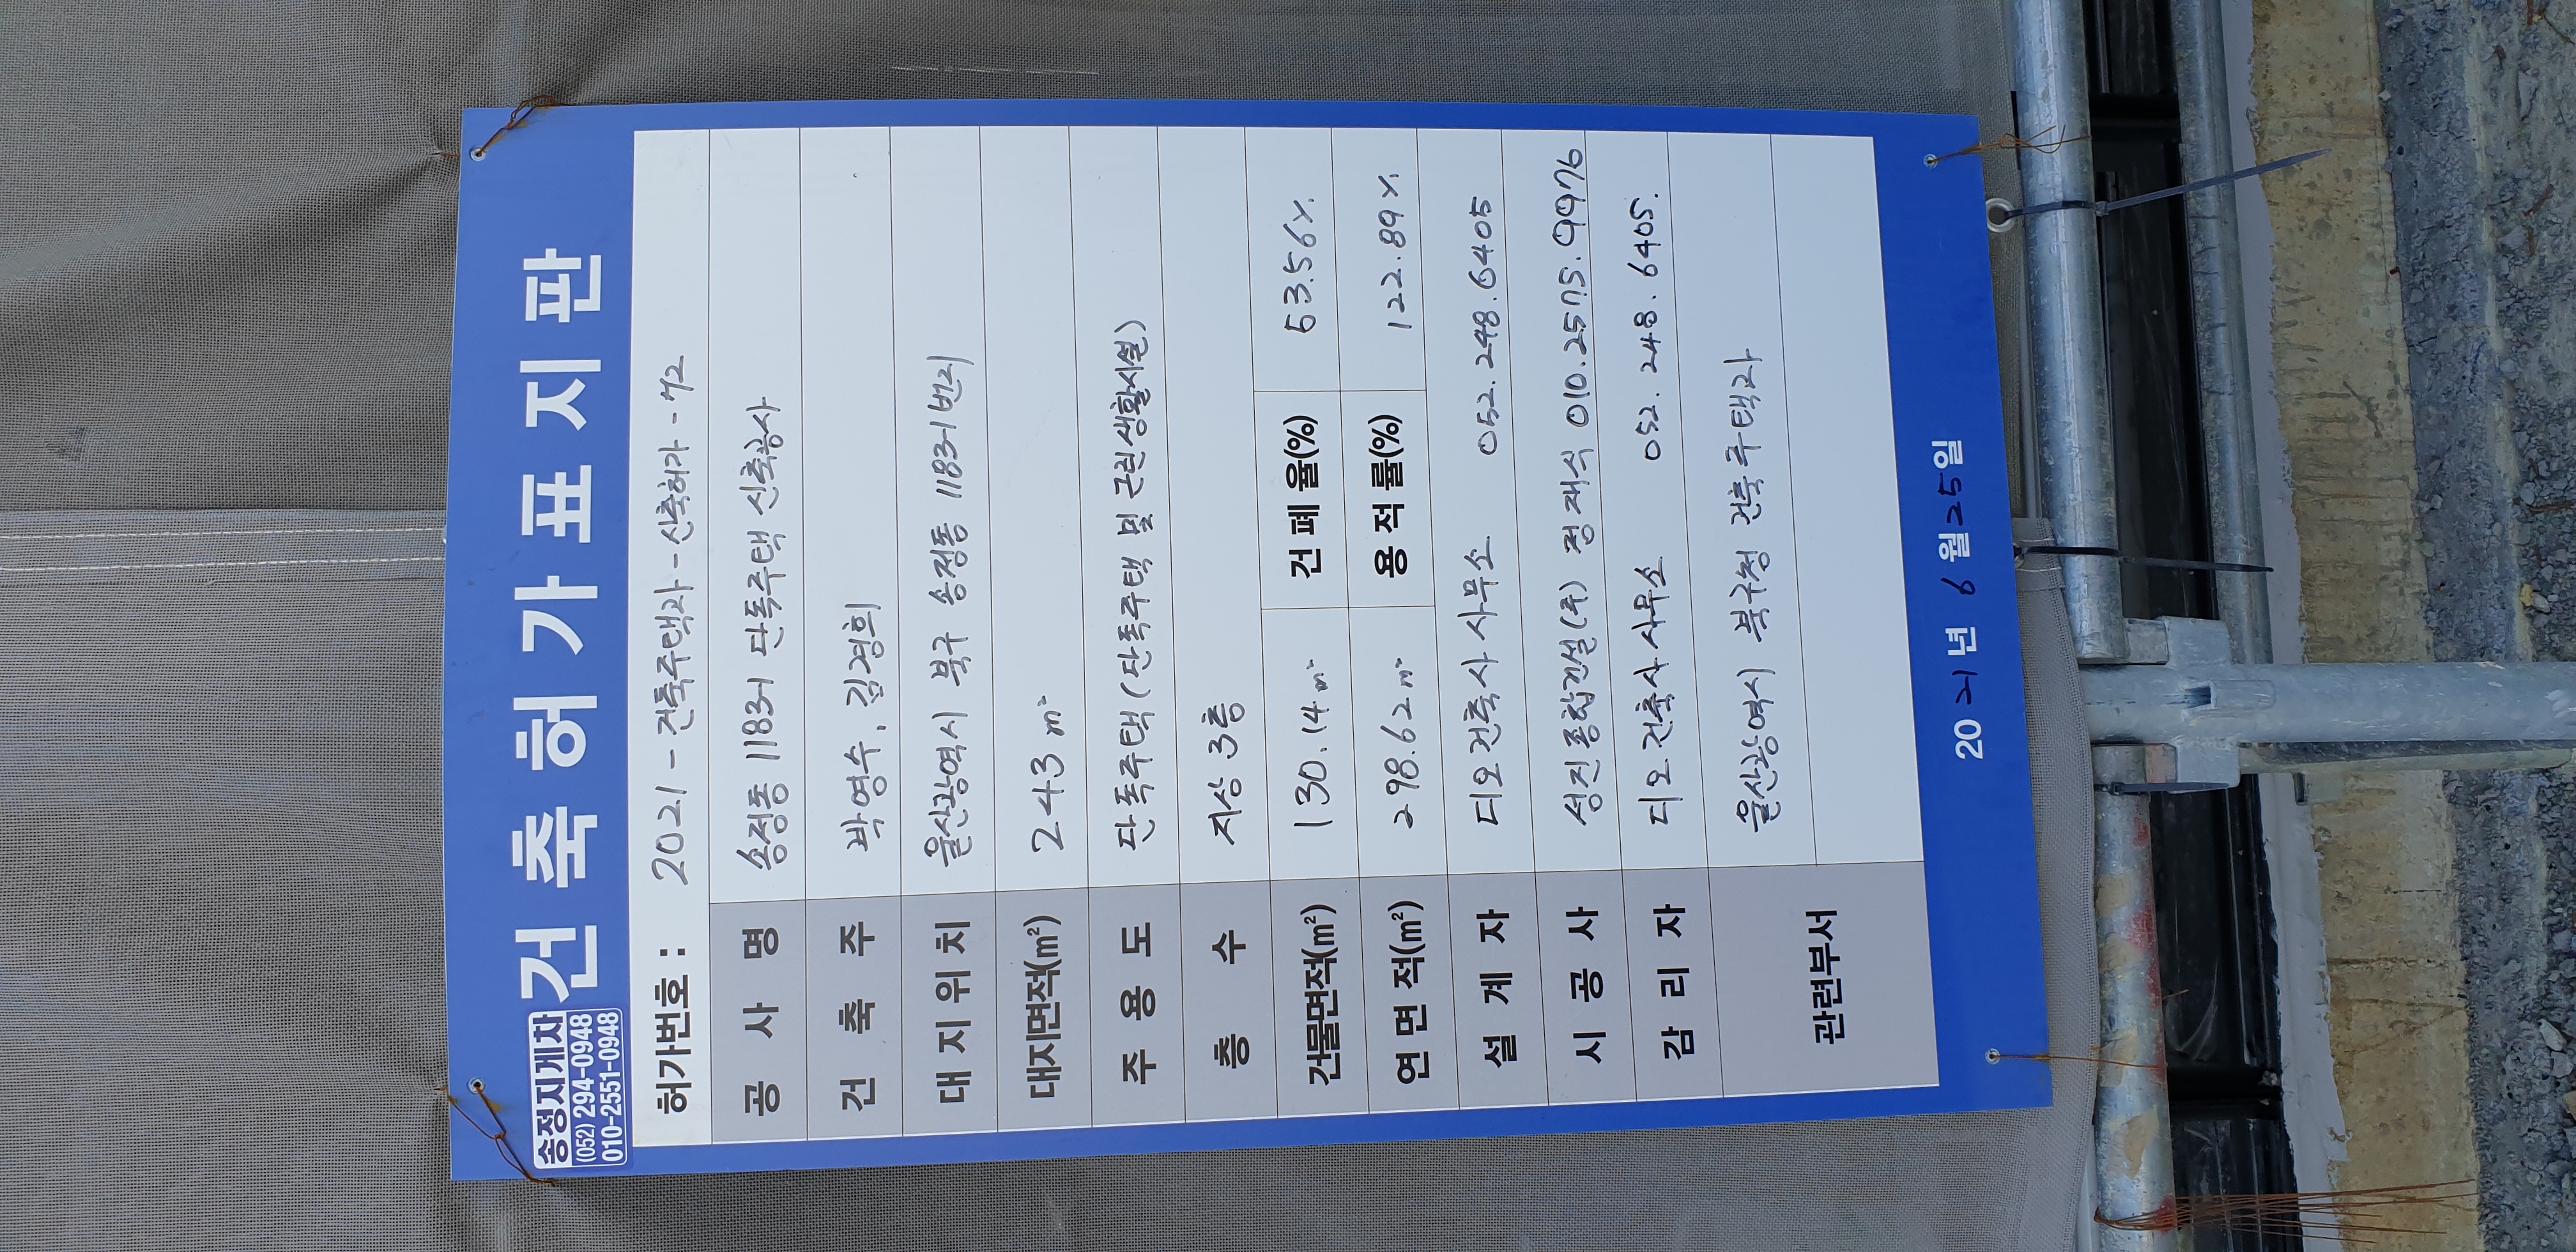 송정지게차
(052) 294-0948
010-2551-0948
건축허가표지판
허가번호 : 2021 - 건축주택과 - 신축허가 - 72
공사명 송정동 1183-1 단독주택 신축공사
건축주 박영수, 김경희
대지위치 울산광역시 북구 송정동 1183-1번지
대지면적(㎡) 243 ㎡
주용도 단독주택(단독주택 및 근린생활시설)
층수 지상 3층
건물면적(㎡) 130.14 ㎡ 건폐율(%) 53.56%
연면적(㎡) 298.62 ㎡ 용적률(%) 122.89%
설계자 디오건축사사무소 052.248.6405
시공사 성진종합건설(주) 정재식 010.2575.9976
감리자 디오건축사사무소 052.248.6405.
관련부서 울산광역시 북구청 건축주택과
2021년 6월 25일